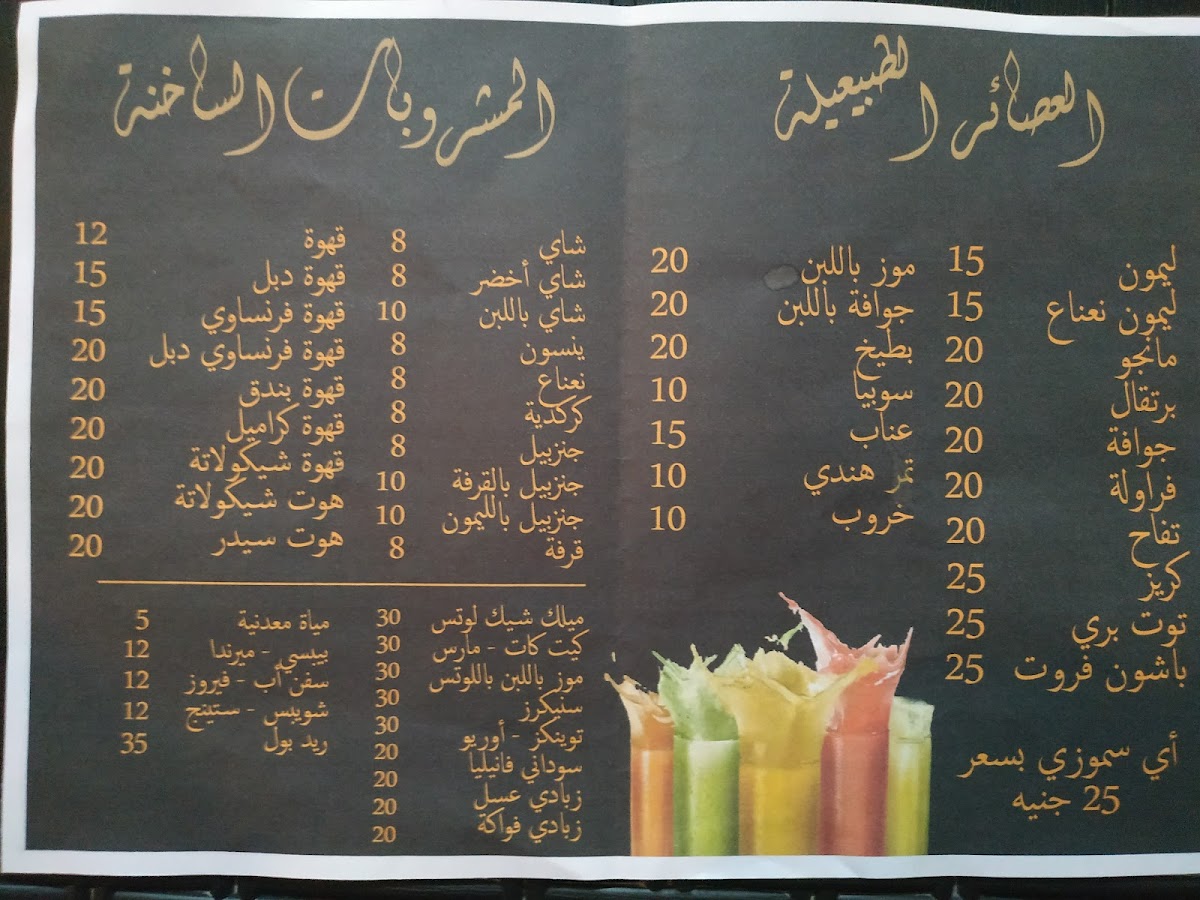 العصائر الطبيعيلة
ليمون 15
ليمون نعناع 15
مانجو 20
برتقال 20
جوافة 20
فراولة 20
تفاح 20
كريز 25
توت بري 25
باشون فروت 25
أي سموزي بسعر
25 جنيه
موز باللبن 20
جوافة باللبن 20
بطيخ 20
سوبيا 10
عناب 15
تمر هندي 10
خروب 10
المشروبات الساخنة
شاي 8
شاي أخضر 8
شاي باللبن 10
ينسون 8
نعناع 8
كركدية 8
جنزبيل 8
جنزبيل بالقرفة 10
جنزبيل بالليمون 10
قرفة 8
قهوة 12
قهوة دبل 15
قهوة فرنساوي 15
قهوة فرنساوي دبل 20
قهوة بندق 20
قهوة كراميل 20
قهوة شيكولاتة 20
هوت شيكولاتة 20
هوت سيدر 20
ميلك شيك لوتس 30
كيت كات - مارس 30
موز باللبن باللوتس 30
سنيكرز 30
توينكز - أوريو 30
سوداني فانيليا 20
زبادي عسل 20
زبادي فواكة 20
20
مياة معدنية 5
بيبسي - ميرندا 12
سفن أب - فيروز 12
شويبس - ستينج 12
ريد بول 35